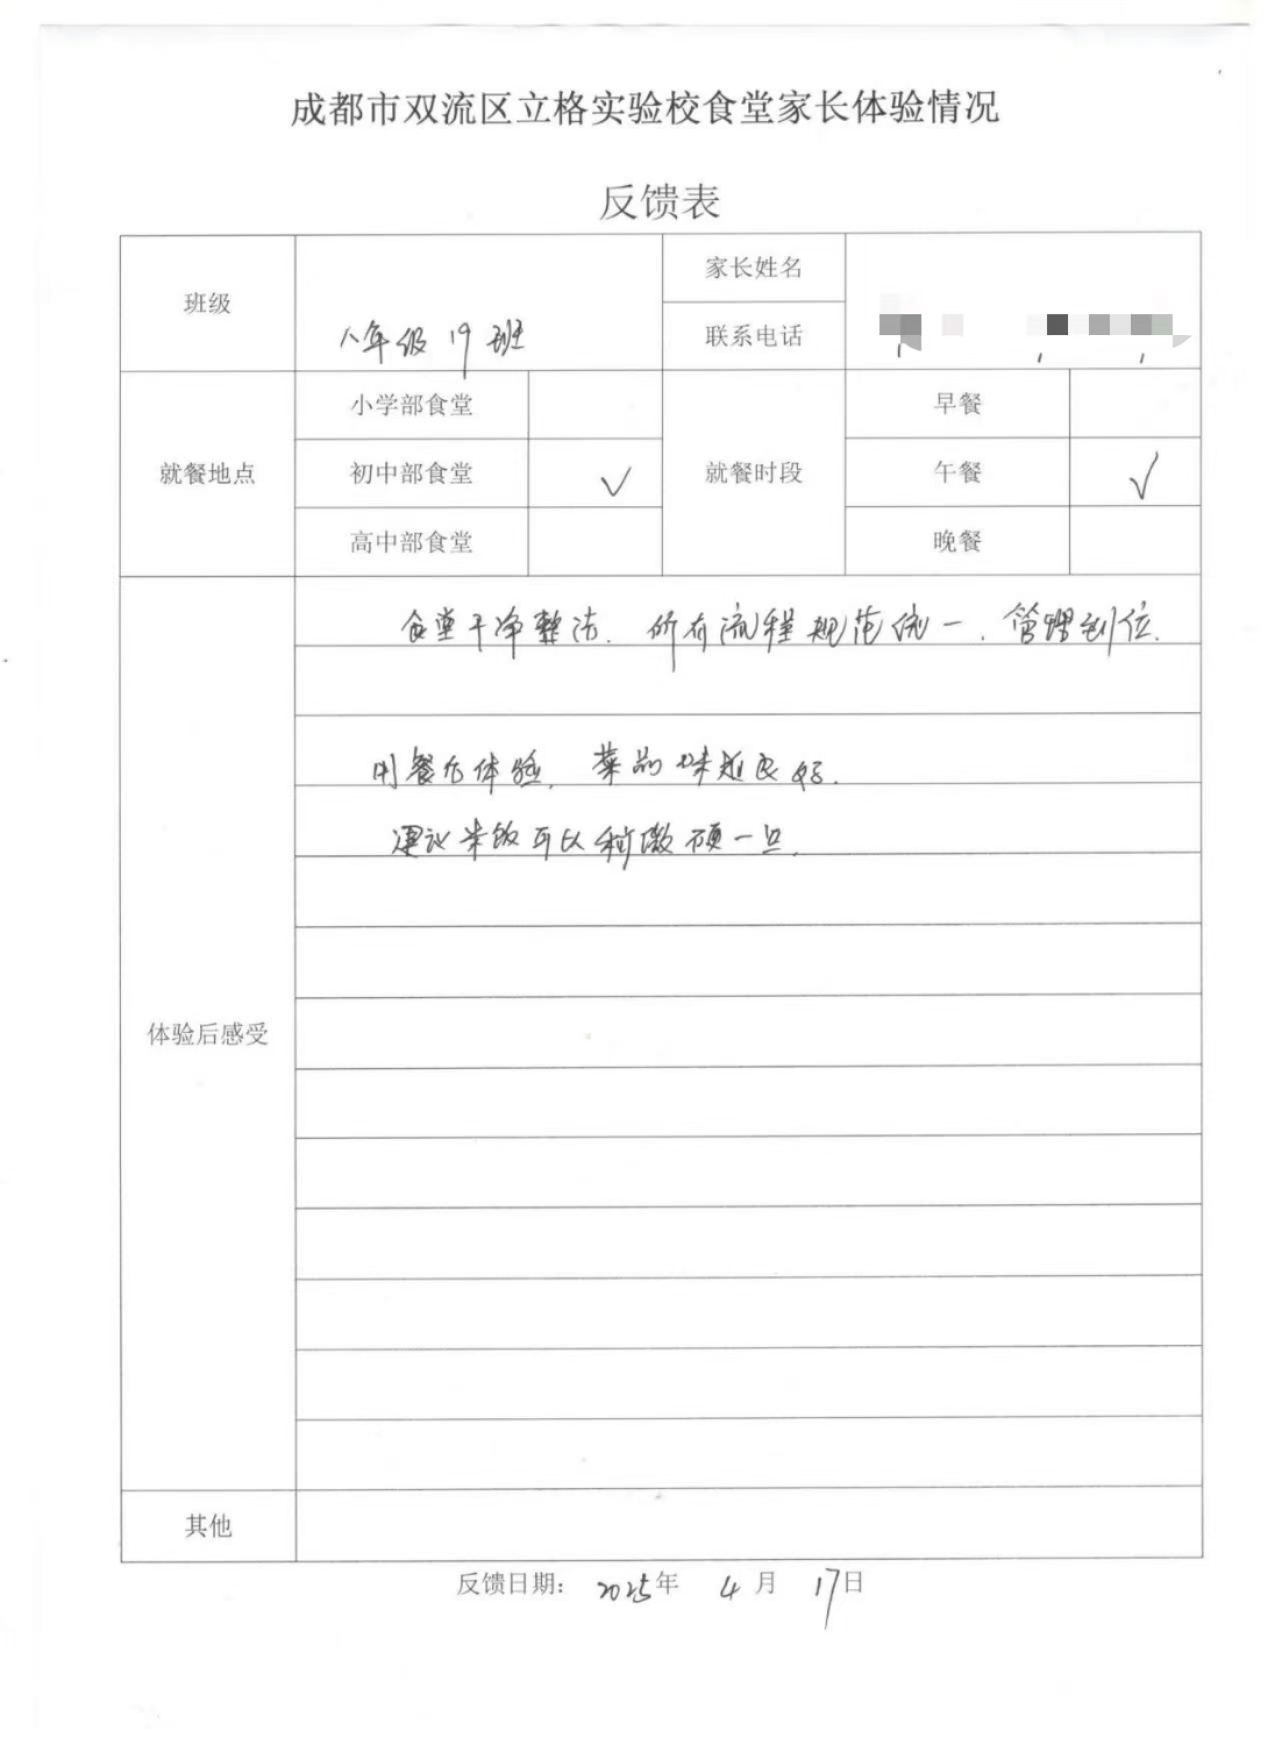 成都市双流区立格实验校食堂家长体验情况
反馈表
班级
八年级19班
家长姓名
联系电话
就餐地点
小学部食堂
初中部食堂 ✓
高中部食堂
就餐时段
早餐
午餐 ✓
晚餐
体验后感受
食堂干净整洁.所有流程规范统一.管理到位.
用餐后体验,菜品味道良好.
建议米饭可以稍微硬一点.
其他
反馈日期：2025年 4月 17日